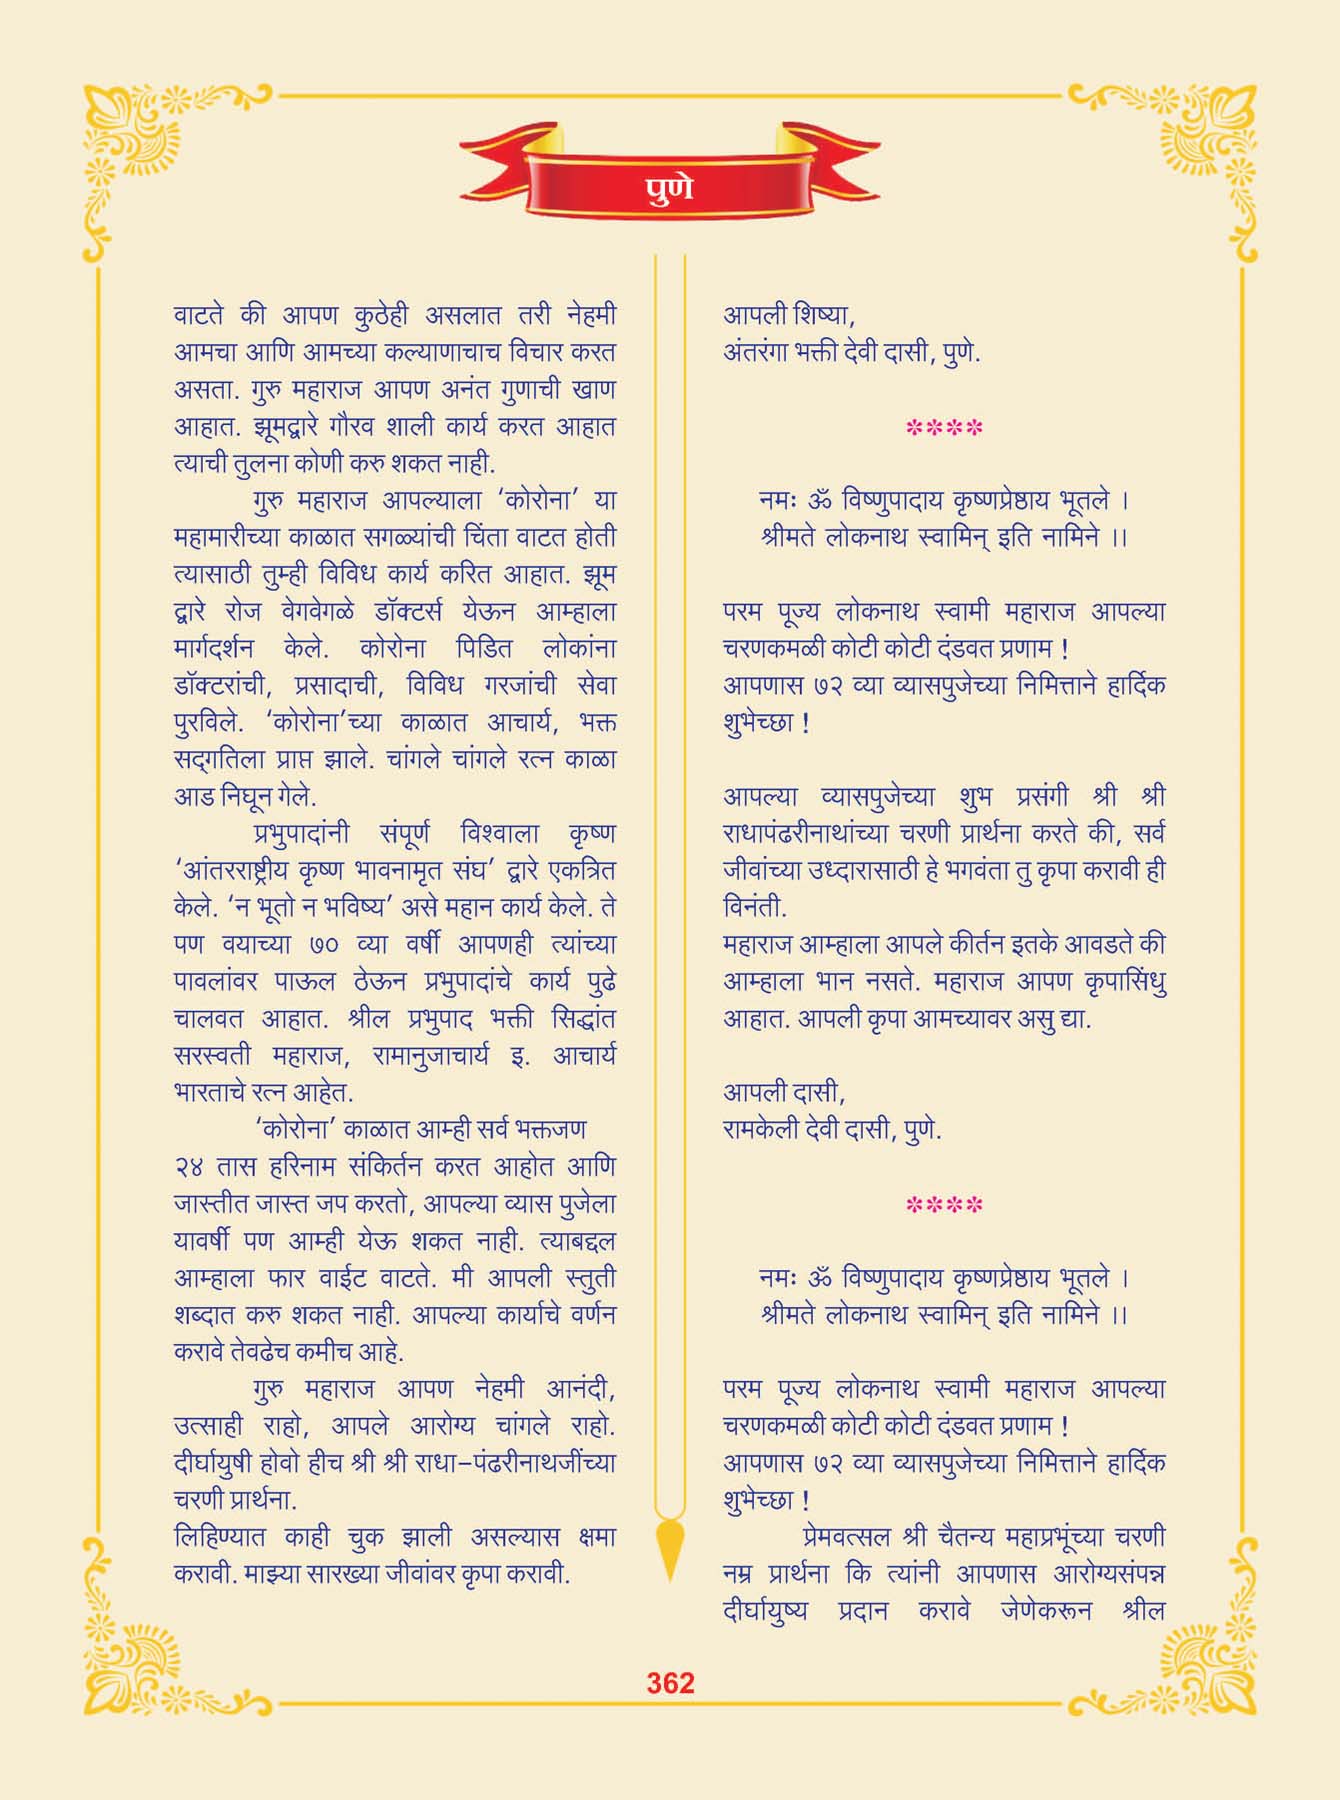 पुणे
वाटते की आपण कुठेही असलात तरी नेहमी
आमचा आणि आमच्या कल्याणाचाच विचार करत
असता. गुरु महाराज आपण अनंत गुणाची खाण
आहात. झूमद्वारे गौरव शाली कार्य करत आहात
त्याची तुलना कोणी करु शकत नाही.
गुरु महाराज आपल्याला ‘कोरोना’ या
महामारीच्या काळात सगळ्यांची चिंता वाटत होती
त्यासाठी तुम्ही विविध कार्य करित आहात. झूम
द्वारे रोज वेगवेगळे डॉक्टर्स येऊन आम्हाला
मार्गदर्शन केले. कोरोना पिडित लोकांना
डॉक्टरांची, प्रसादाची, विविध गरजांची सेवा
पुरविले. ‘कोरोना’च्या काळात आचार्य, भक्त
सद्‌गतिला प्राप्त झाले. चांगले चांगले रत्न काळा
आड निघून गेले.
प्रभुपादांनी संपूर्ण विश्वाला कृष्ण
‘आंतरराष्ट्रीय कृष्ण भावनामृत संघ’ द्वारे एकत्रित
केले. ‘न भूतो न भविष्य’ असे महान कार्य केले. ते
पण वयाच्या ७० व्या वर्षी आपणही त्यांच्या
पावलांवर पाऊल ठेऊन प्रभुपादांचे कार्य पुढे
चालवत आहात. श्रील प्रभुपाद भक्ती सिद्धांत
सरस्वती महाराज, रामानुजाचार्य इ. आचार्य
भारताचे रत्न आहेत.
‘कोरोना’ काळात आम्ही सर्व भक्तजण
२४ तास हरिनाम संकिर्तन करत आहोत आणि
जास्तीत जास्त जप करतो, आपल्या व्यास पुजेला
यावर्षी पण आम्ही येऊ शकत नाही. त्याबद्दल
आम्हाला फार वाईट वाटते. मी आपली स्तुती
शब्दात करु शकत नाही. आपल्या कार्याचे वर्णन
करावे तेवढेच कमीच आहे.
गुरु महाराज आपण नेहमी आनंदी,
उत्साही राहो, आपले आरोग्य चांगले राहो.
दीर्घायुषी होवो हीच श्री श्री राधा–पंढरीनाथजींच्या
चरणी प्रार्थना.
लिहिण्यात काही चुक झाली असल्यास क्षमा
करावी. माझ्या सारख्या जीवांवर कृपा करावी.
आपली शिष्या,
अंतरंगा भक्ती देवी दासी, पुणे.
****
नमः ॐ विष्णुपादाय कृष्णप्रेष्ठाय भूतले ।
श्रीमते लोकनाथ स्वामिन् इति नामिने ।।
परम पूज्य लोकनाथ स्वामी महाराज आपल्या
चरणकमळी कोटी कोटी दंडवत प्रणाम !
आपणास ७२ व्या व्यासपुजेच्या निमित्ताने हार्दिक
शुभेच्छा !
आपल्या व्यासपुजेच्या शुभ प्रसंगी श्री श्री
राधापंढरीनाथांच्या चरणी प्रार्थना करते की, सर्व
जीवांच्या उध्दारासाठी हे भगवंता तु कृपा करावी ही
विनंती.
महाराज आम्हाला आपले कीर्तन इतके आवडते की
आम्हाला भान नसते. महाराज आपण कृपासिंधु
आहात. आपली कृपा आमच्यावर असु द्या.
आपली दासी,
रामकेली देवी दासी, पुणे.
****
नमः ॐ विष्णुपादाय कृष्णप्रेष्ठाय भूतले ।
श्रीमते लोकनाथ स्वामिन् इति नामिने ।।
परम पूज्य लोकनाथ स्वामी महाराज आपल्या
चरणकमळी कोटी कोटी दंडवत प्रणाम !
आपणास ७२ व्या व्यासपुजेच्या निमित्ताने हार्दिक
शुभेच्छा !
प्रेमवत्सल श्री चैतन्य महाप्रभूंच्या चरणी
नम्र प्रार्थना कि त्यांनी आपणास आरोग्यसंपन्न
दीर्घायुष्य प्रदान करावे जेणेकरून श्रील
362